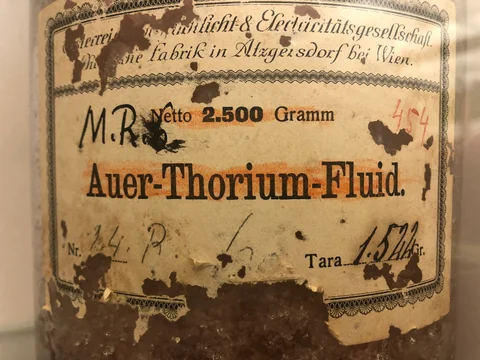 & Electricitätsgesellschaft.
Fabrik in Atzgersdorf bei Wien.
M.R. Netto 2.500 Gramm 454
Auer-Thorium-Fluid.
Nr. 14. P Tara 1.522 Gr.